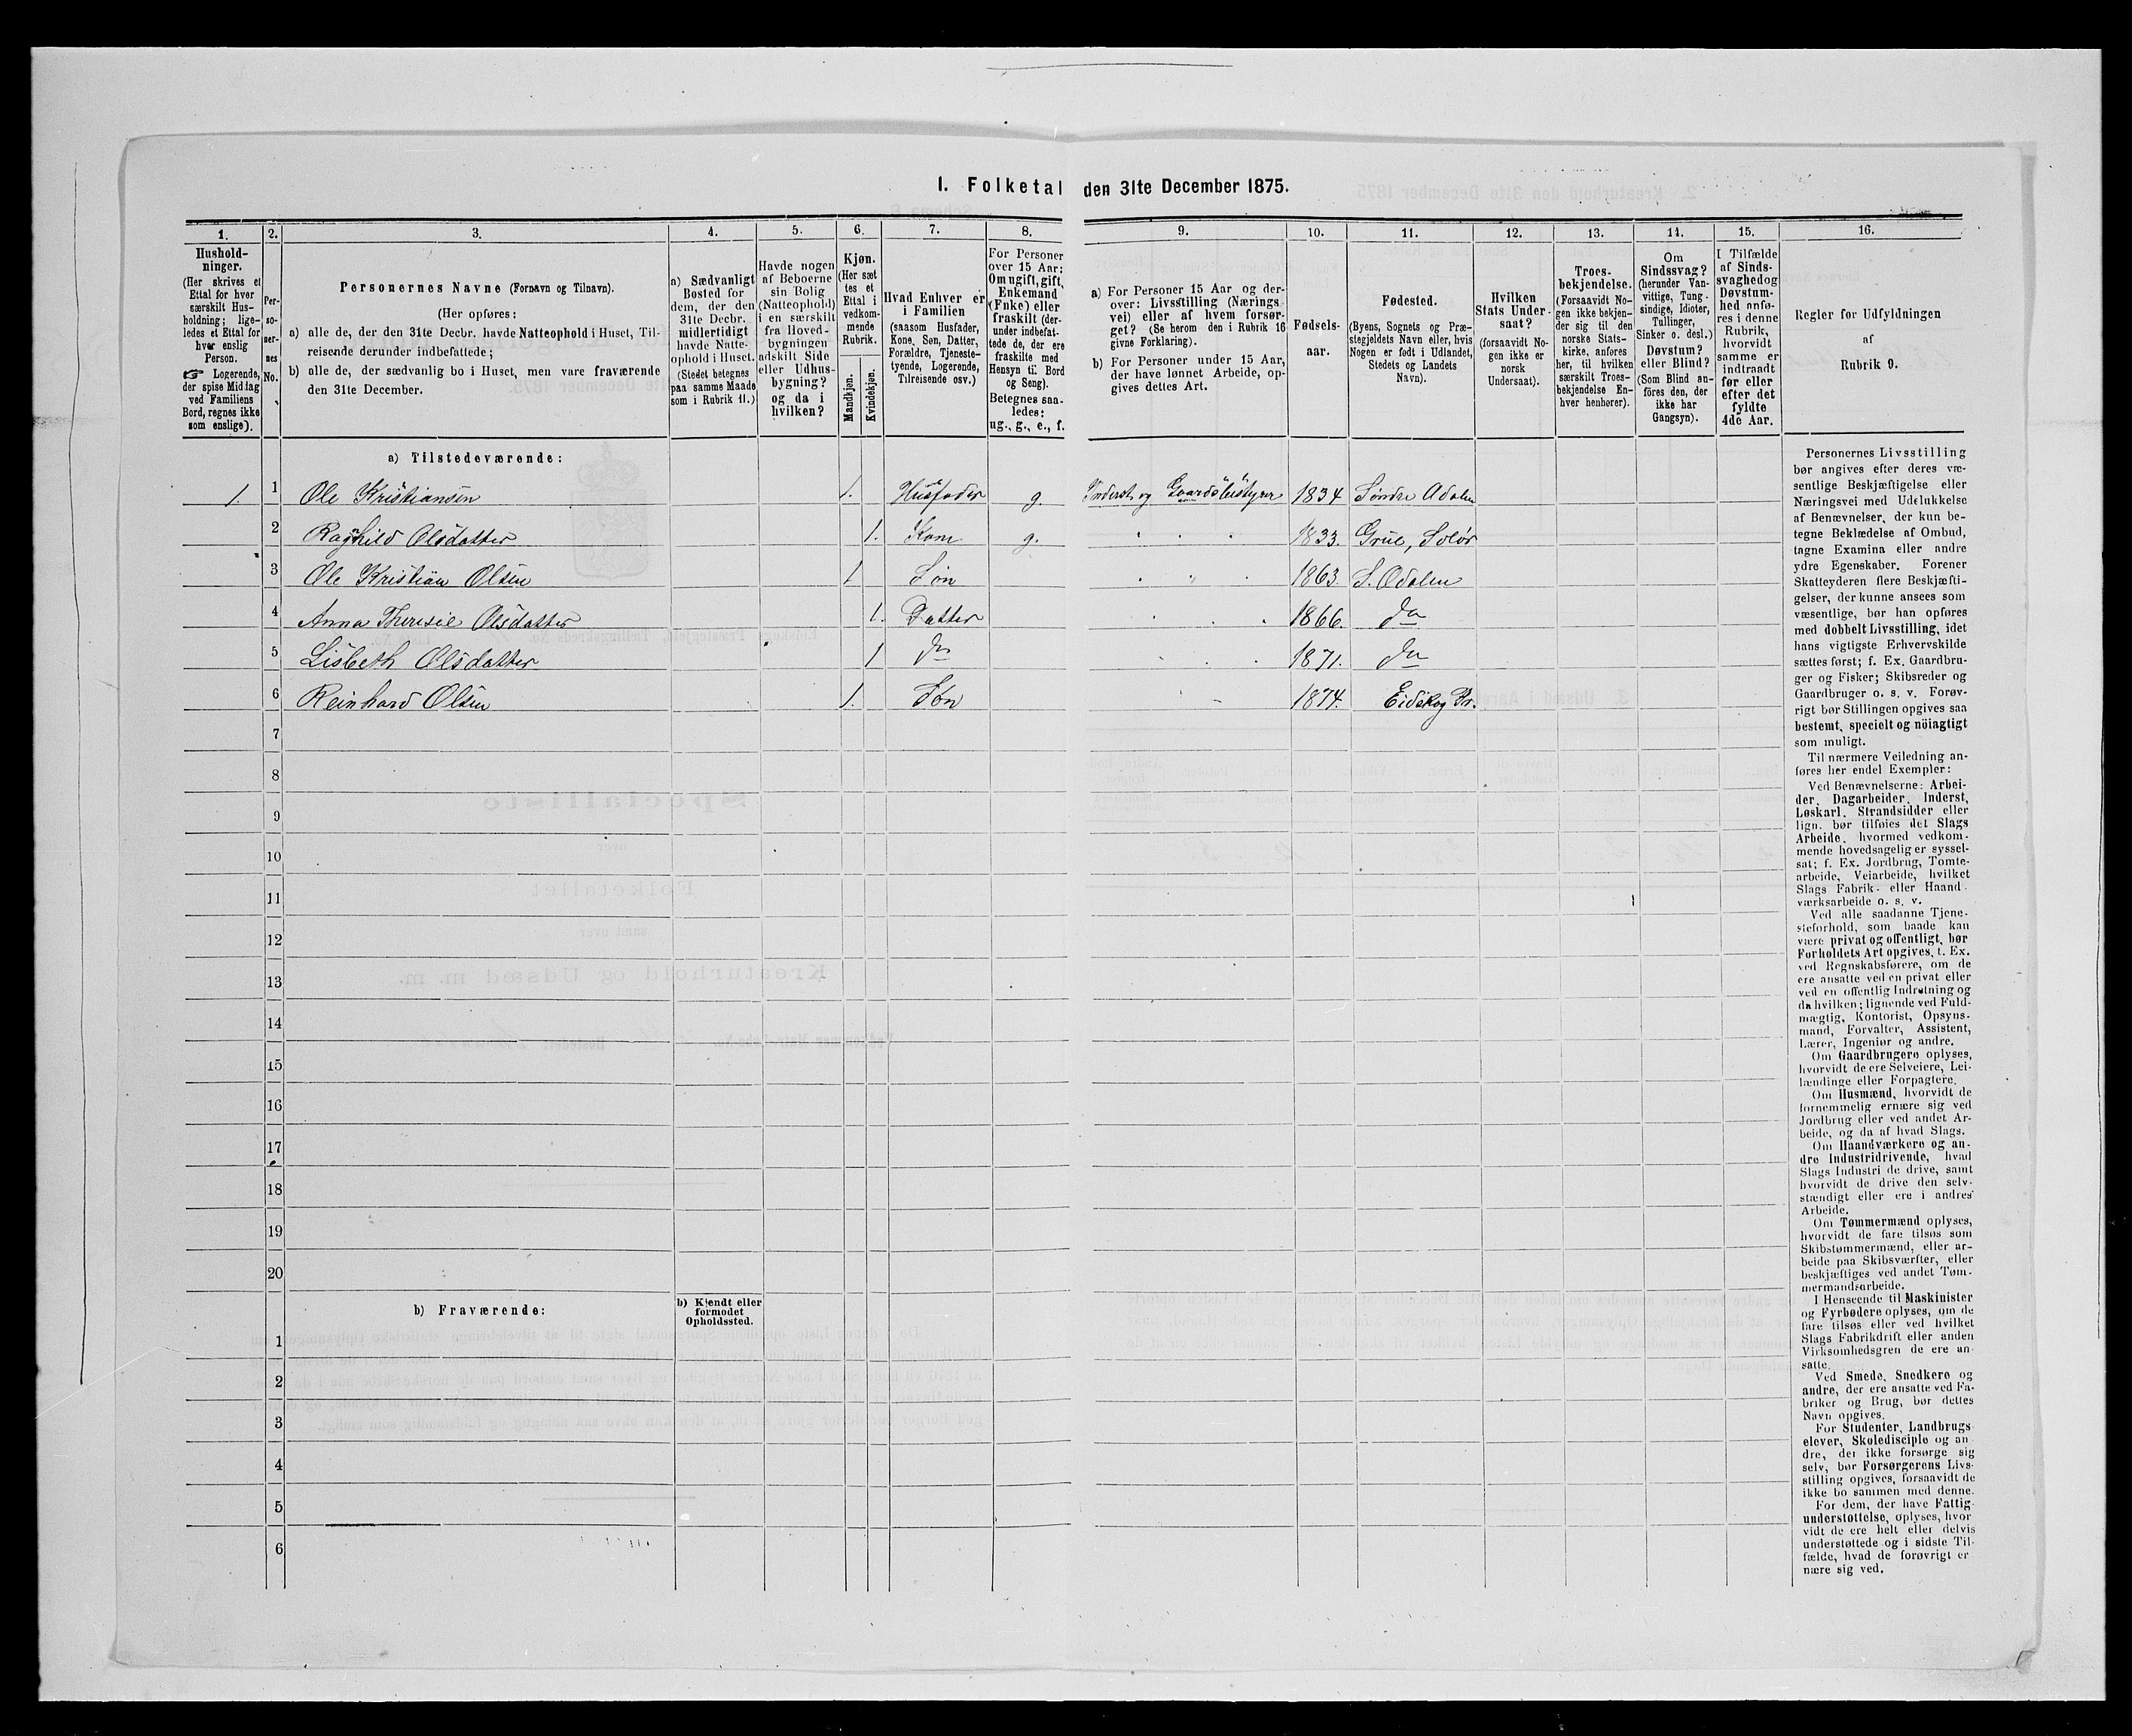 1. Folketal den 31te December 1875.
1. 2. 3. 4. 5. 6. 7. 8. 9. 10. 11. 12. 13. 14. 15. 16.
Hushold-
ninger.
(Her skrives et
Ettal for hver
særskilt Hus-
holdning; lige-
ledes et Ettal for
hver enslig
Person.
☞ Logerende,
der spise Middag
ved Familiens
Bord, regnes ikke
som enslige).
Per-
so-
ner-
nes
No.
Personernes Navne (Fornavn og Tilnavn).
(Her opføres:
a) alle de, der den 31te Decbr. havde Natteophold i Huset, Til-
reisende derunder indbefattede;
b) alle de, der sædvanlig bo i Huset, men vare fraværende
den 31te December.
a) Sædvanligt
Bosted for
dem, der den
31te Decbr.
midlertidigt
havde Natte-
ophold i Huset.
(Stedet betegnes
paa samme Maade
som i Rubrik 11.)
Havde nogen
af Beboerne
sin Bolig
(Natteophold)
i en særskilt
fra Hoved-
bygningen
adskilt Side
eller Udhus-
bygning?
og da i
hvilken?
Kjøn.
(Her sæt
tes et
Ettal i
vedkom-
mende
Rubrik.
Mandkjøn.
Kvindekjøn.
Hvad Enhver er
i Familien
(saasom Husfader,
Kone, Søn, Datter,
Forældre, Tjeneste-
tyende, Logerende,
Tilreisende osv.)
For Personer
over 15 Aar:
Om ugift, gift,
Enkemand
(Enke) eller
fraskilt (der-
under indbefat-
tede de, der ere
fraskilte med
Hensyn til Bord
og Seng).
Betegnes saa-
ledes:
ug., g., e., f.
a) For Personer 15 Aar og der-
over: Livsstilling (Nærings
vei) eller af hvem forsør-
get? (Se herom den i Rubrik 16
givne Forklaring).
b) For Personer under 15 Aar,
der have lønnet Arbeide, op-
gives dettes Art.
Fødsels-
aar.
Fødested.
(Byens, Sognets og Præ-
stegjeldets Navn eller, hvis
Nogen er født i Udlandet,
Stedets og Landets
Navn).
Hvilken
Stats Under-
saat?
(forsaavidt No-
gen ikke er
norsk
Undersaat).
Troes-
bekjendelse.
(Forsaavidt No-
gen ikke bekjen-
der sig til den
norske Stats-
kirke, anføres
her, til hvilken
særskilt Troes-
bekjendelse En-
hver henhører).
Om
Sindssvag?
(herunder Van-
vittige, Tung-
sindige, Idioter,
Tullinger,
Sinker o. desl.)
Døvstum?
eller Blind?
(Som Blind an-
føres den, der
ikke har
Gangsyn).
I Tilfælde
af Sinds-
svaghed og
Døvstum-
hed anfø-
res i denne
Rubrik,
hvorvidt
samme er
indtraadt
før eller
efter det
fyldte
4de Aar.
Regler for Udfyldningen
af
Rubrik 9.
a) Tilstedeværende:
1. 1 Ole Kristiansen 1. Husfader g. Inderst og Gaardsbestyrer 1834 Søndre Odalen
2 Raghild Olsdatter 1. Kone g. 1833. Grue, Solør
3 Ole Kristian Olsen 1 Søn 1863. S. Odalen
4 Anna Theresie Olsdatter 1. Datter 1866. do
5 Lisbeth Olsdatter 1 do 1871. do
6 Reinhard Olsen 1. Søn 1874. Eidskog Pr.
7
8
9
10
11
12
13
14
15
16
17
18
19
20
b) Fraværende:
b) Kjendt eller
formodet
Opholdssted.
1
2
3
4
5
6
Personernes Livsstilling
bør angives efter deres væ-
sentlige Beskjæftigelse eller
Næringsvei med Udelukkelse
af Benævnelser, der kun be-
tegne Beklædelse af Ombud,
tagne Examina eller andre
ydre Egenskaber. Forener
Skatteyderen flere Beskjæfti-
gelser, der kunne ansees som
væsentlige, bør han opføres
med dobbelt Livsstilling, idet
hans vigtigste Erhvervskilde
sættes først; f. Ex. Gaardbru-
ger og Fisker; Skibsreder og
Gaardbruger o. s. v. Forøv-
rigt bør Stillingen opgives saa
bestemt, specielt og nöiagtigt
som muligt.
Til nærmere Veiledning an-
føres her endel Exempler:
Ved Benævnelserne: Arbei-
der, Dagarbeider, Inderst,
Løskarl, Strandsidder eller
lign. bør tilføies det Slags
Arbeide, hvormed vedkom-
mende hovedsagelig er syssel-
sat; f. Ex. Jordbrug, Tomte-
arbeide, Veiarbeide, hvilket
Slags Fabrik- eller Haand-
værksarbeide o. s. v.
Ved alle saadanne Tjene-
steforhold, som baade kan
være privat og offentligt, bør
Forholdets Art opgives, t. Ex.
ved Regnskabsførere, om de
ere ansatte ved en privat eller
ved en offentlig Indretning og
da hvilken; lignende ved Fuld-
mægtig, Kontorist, Opsyns-
mand, Forvalter, Assistent,
Lærer, Ingeniør og andre.
Om Gaardbrugere oplyses,
hvorvidt de ere Selveiere, Lei-
lændinge eller Forpagtere.
Om Husmænd, hvorvidt de
fornemmelig ernære sig ved
Jordbrug eller ved andet Ar-
beide, og da af hvad Slags.
Om Haandværkere og an-
dre Industridrivende, hvad
Slags Industri de drive, samt
hvorvidt de drive den selv-
stændigt eller ere i andres
Arbeide.
Om Tømmermænd oplyses,
hvorvidt de fare tilsøs som
Skibstømmermænd, eller ar-
beide paa Skibsværfter, eller
beskjæftiges ved andet Tøm-
mermandsarbeide.
I Henseende til Maskinister
og Fyrbødere oplyses, om de
fare tilsøs eller ved hvilket
Slags Fabrikdrift eller anden
Virksomhedsgren de ere an-
satte.
Ved Smede, Snedkere og
andre, der ere ansatte ved Fa-
briker og Brug, bør dettes
Navn opgives.
For Studenter, Landbrugs
elever, Skoledisciple og an
dre, der ikke forsørge sig
selv, bør Forsørgerens Livs-
stilling opgives, forsaavidt de
ikke bo sammen med denne.
For dem, der have Fattig-
understøttelse, oplyses, hvor
vidt de ere helt eller delvis
understøttede og i sidste Til-
fælde, hvad de forøvrigt er
nære sig ved.